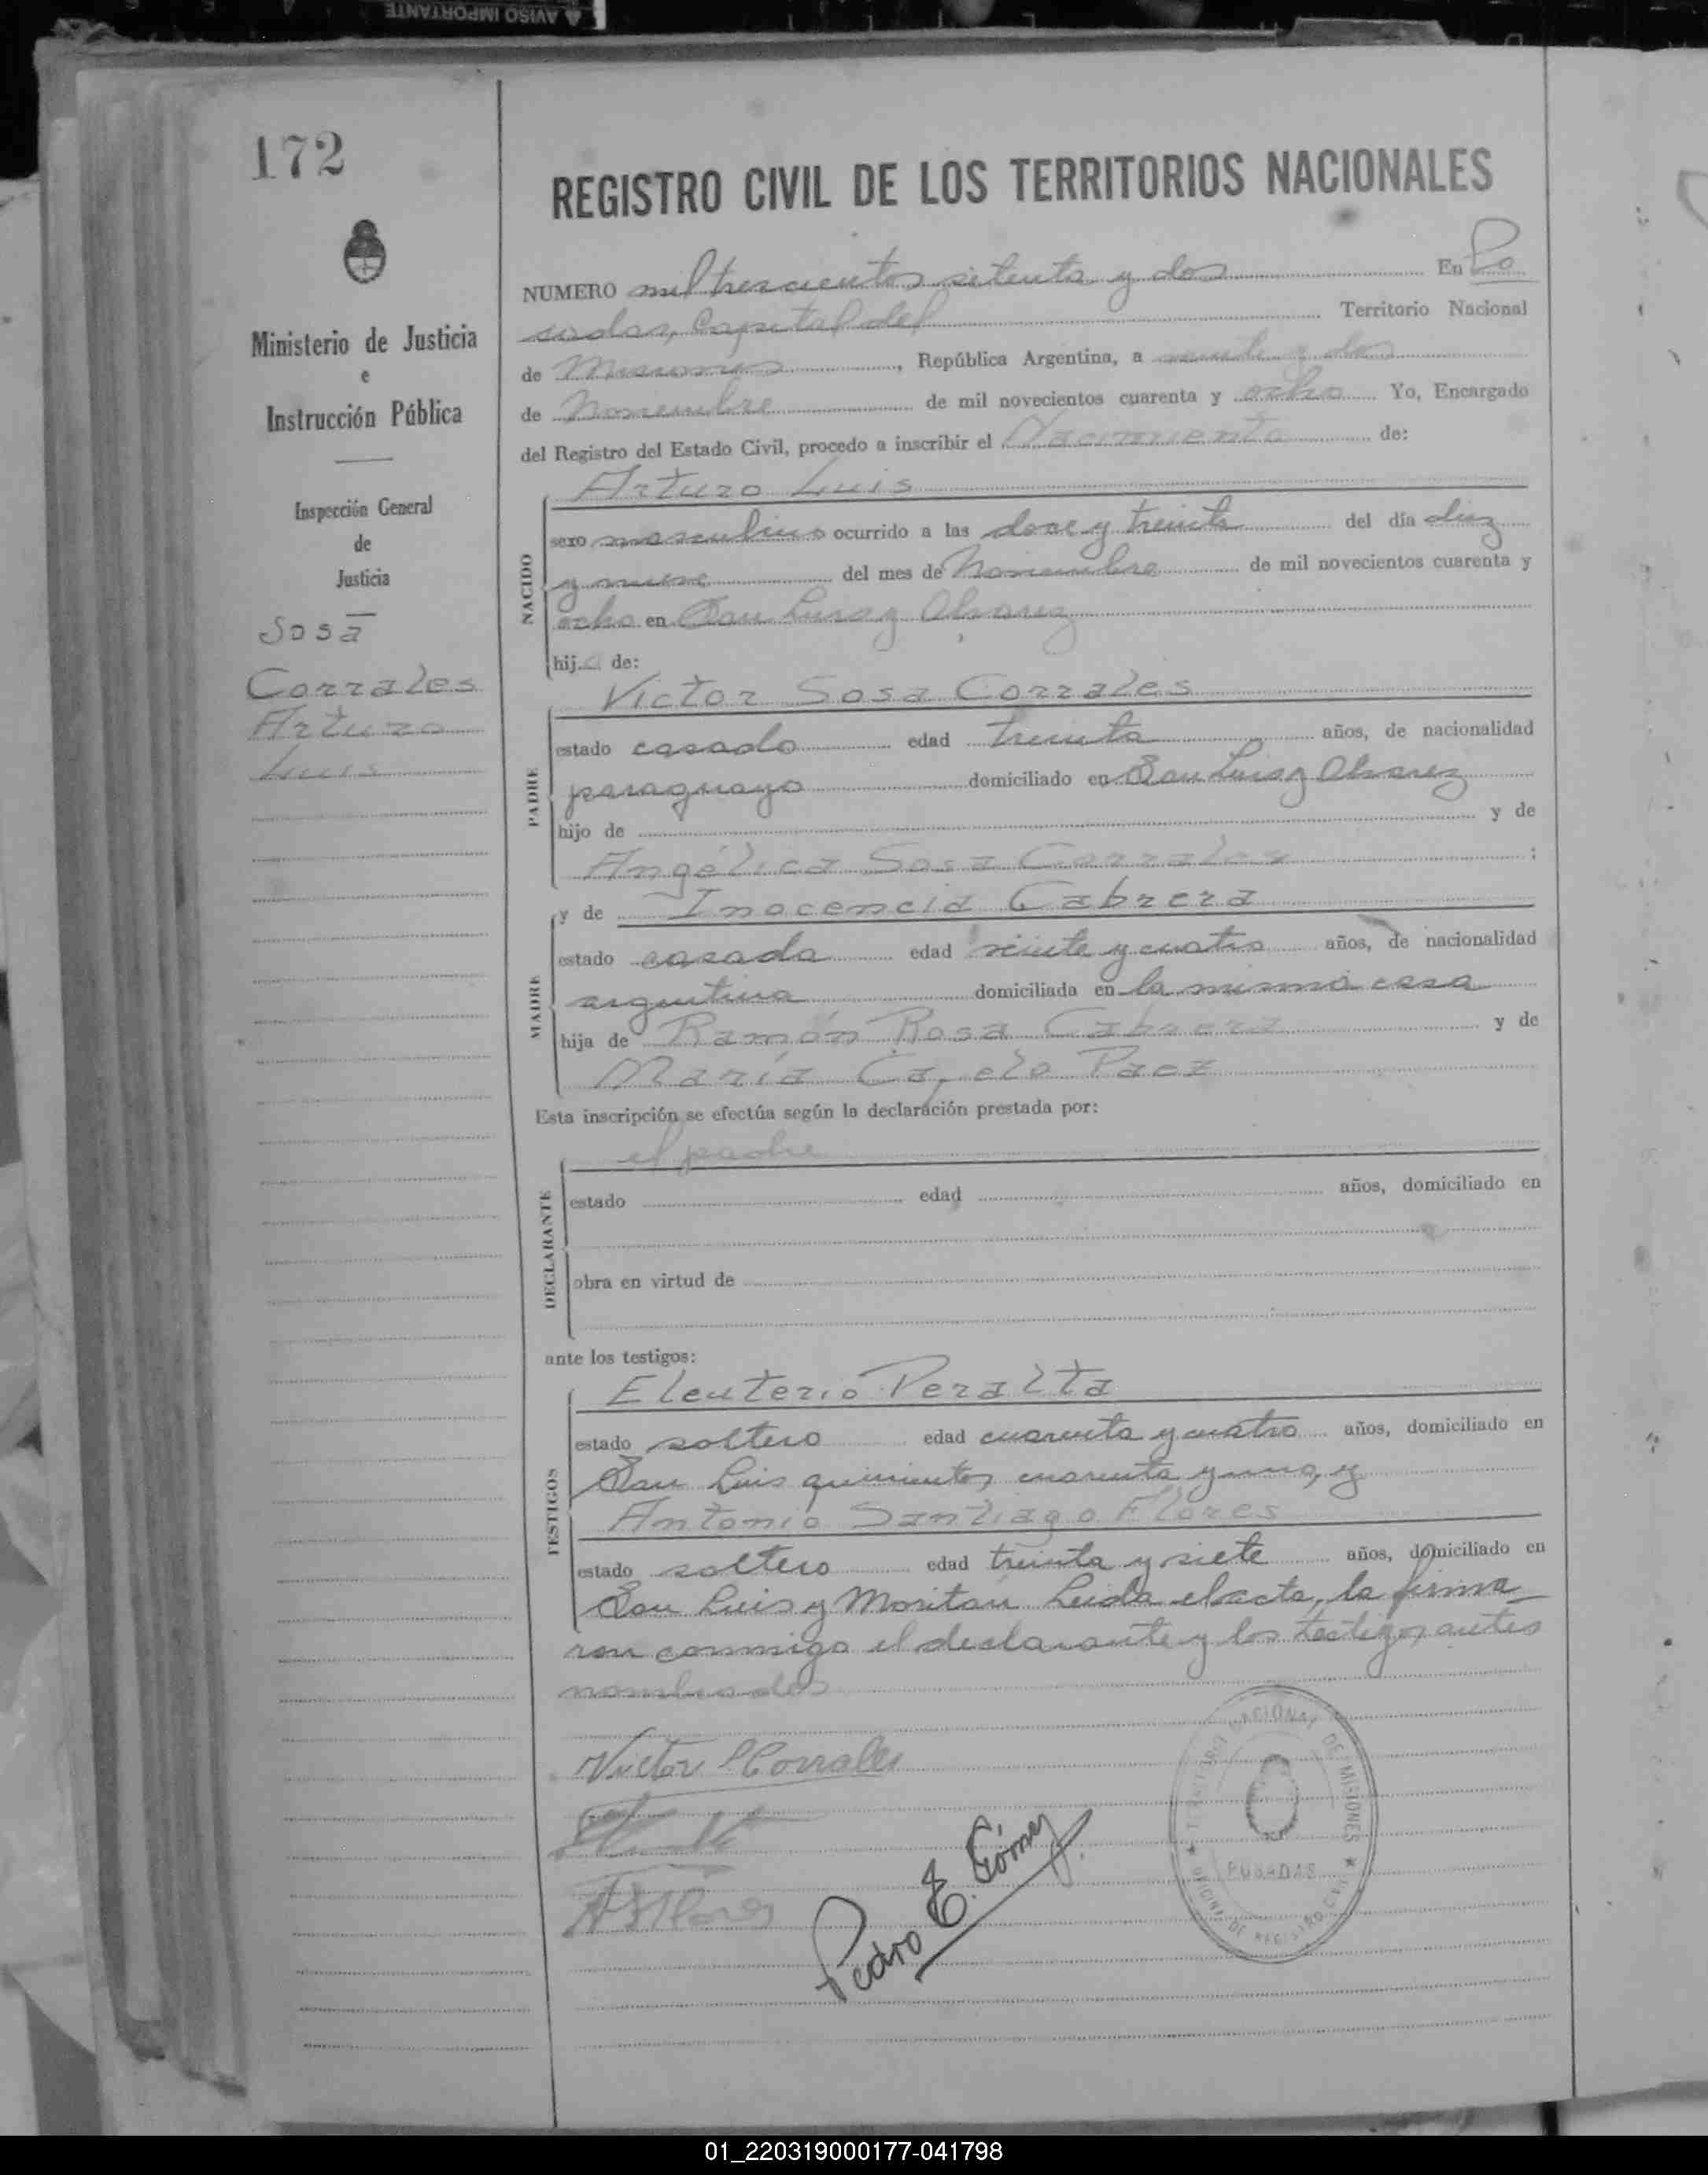 AVISO IMPORTANTE
172
REGISTRO CIVIL DE LOS TERRITORIOS NACIONALES
NUMERO mil trescientos setenta y dos En Po
sadas, Capital del Territorio Nacional
de Misiones, República Argentina, a veinte y dos
de Noviembre de mil novecientos cuarenta y ocho Yo, Encargado
del Registro del Estado Civil, procedo a inscribir el Nacimiento de:
Ministerio de Justicia
e
Instrucción Pública
Inspección General
de
Justicia
Sosa
Corrales
Arturo
Luis
Arturo Luis
NACIDO
sexo masculino ocurrido a las doce y treinta del día diez
y nueve del mes de Noviembre de mil novecientos cuarenta y
ocho en San Luis y Alvarez
hijo de:
Victor Sosa Corrales
PADRE
estado casado edad treinta años, de nacionalidad
paraguayo domiciliado en San Luis y Alvarez
hijo de y de
Angélica Sosa Corrales ;
y de Inocencia Cabrera
MADRE
estado casada edad veinte y cuatro años, de nacionalidad
argentina domiciliada en la misma casa
hija de Ramón Rosa Cabrera y de
María Paez
Esta inscripción se efectúa según la declaración prestada por:
el padre
DECLARANTE
estado edad años, domiciliado en
obra en virtud de
ante los testigos:
Eleuterio Peralta
TESTIGOS
estado soltero edad cuarenta y cuatro años, domiciliado en
San Luis quinientos cuarenta y uno, y
Antonio Santiago Flores
estado soltero edad treinta y siete años, domiciliado en
San Luis y Moritan Leida el acta, la firma
ron conmigo el declarante y los testigos antes
nombrados
Victor S Corrales
A S Flores
Pedro E. Gómez
TERRITORIO NACIONAL DE MISIONES
POSADAS
OFICINA DE REGISTRO CIVIL
01_220319000177-041798